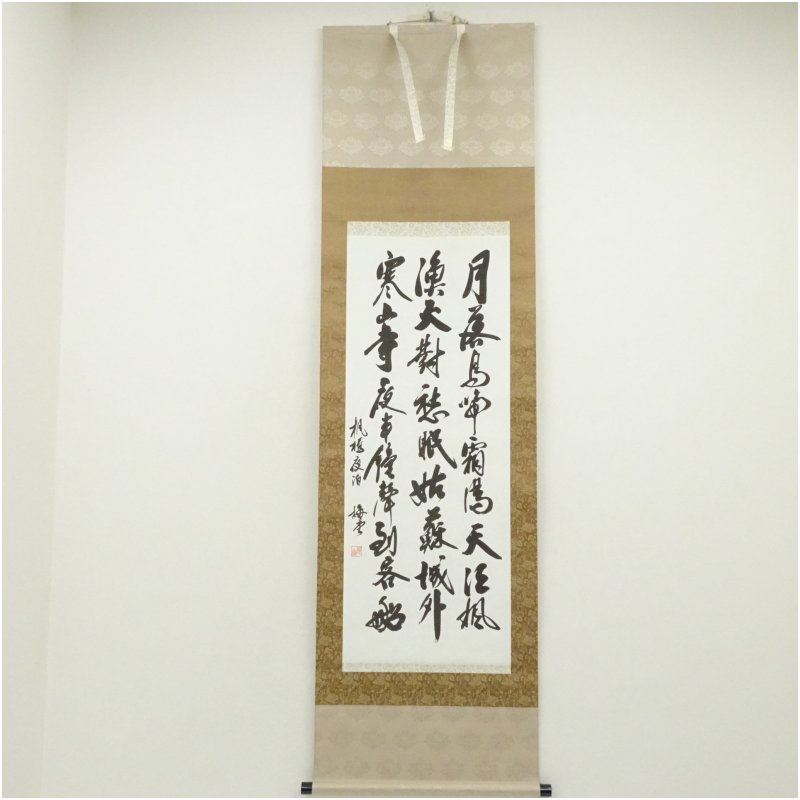 月落烏啼霜満天江楓
漁火對愁眠姑蘇城外
寒山寺夜半鐘聲到客船
楓橋夜泊 梅雲